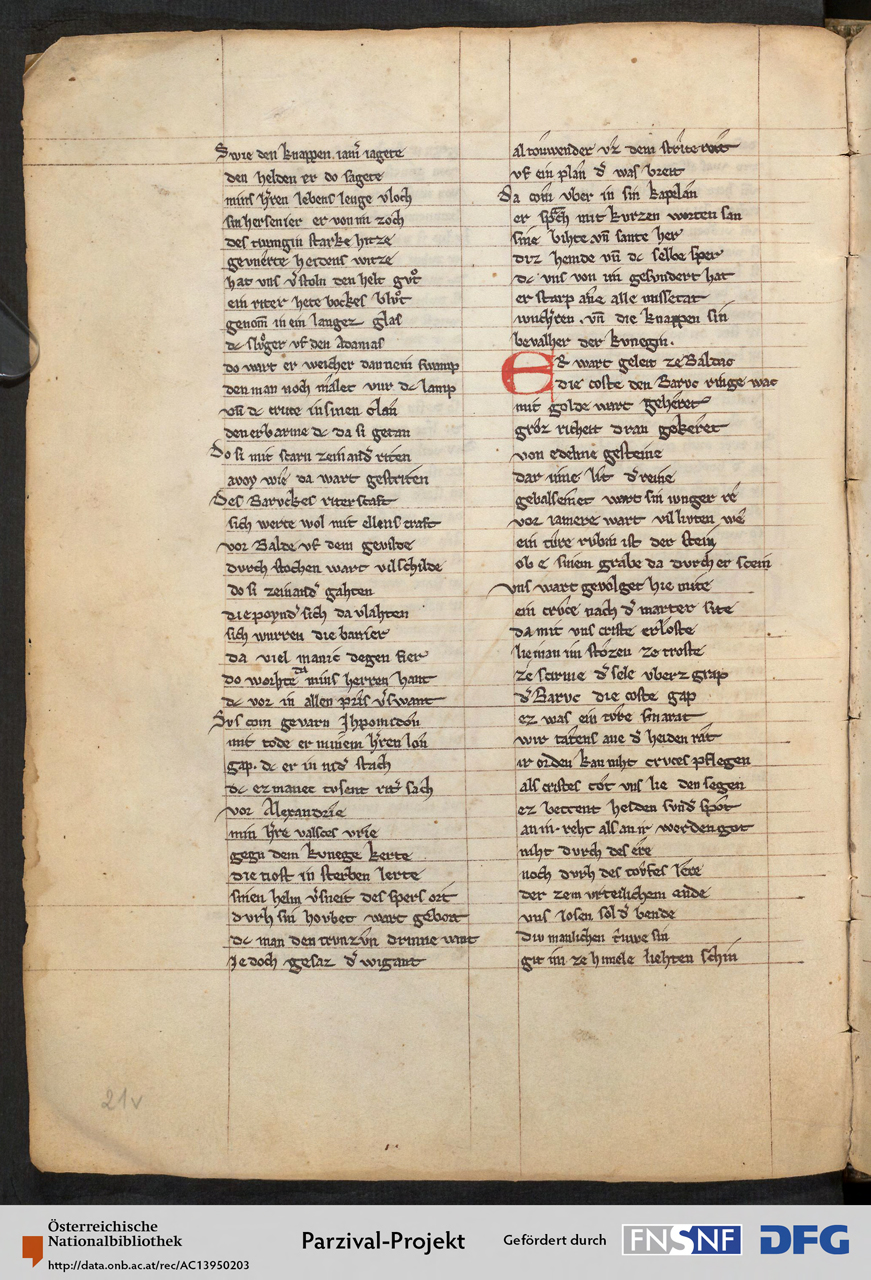 Swie den knappen iam̄ iagete
den helden er do sagete
mins h̉ren lebens lenge vloch
sin hersenier er von im zoch
des twungin starke hitze
gevnerte heidens witze
hat vns v̉stoln den helt gv̊t
ein riter hete bockes blv̊t
genom̄ in ein langez glas
dc slv̊ger vf den Adamas
do wart er weicher danne ein swamp
den man noch malet vur dc lamp
vn̄ dc cruce in sinen clan
den erbarme dc da si getan
Do si mit scarn zein and̉ riten
avoy wie da wart gestriten
Des Baruckes riterscaft
sich werte wol mit ellens craft
vor Balde vf dem gevilde
durch stochen wart vil schilde
do si zein and̉ gahten
die poynd̉ sich da vlahten
sich wurren die banier
da viel manic degen fier
do worhte da mins herren hant
dc vor in allen pris v̉swant
Svs com gevarn Jhpomidon
mit tode er minem h̉ren lon
gap. dc er in nid̉ stach
dc ez manec tvsent rit̉ sach
vor Alexandrie
min h̉re valsces vrie
gegn dem kvnege kerte
die tiost in sterben lerte
sinen helm v̉sneit des spers ort
dvrh sin hovbet wart gebort
dc man den trvnzvn drinne vant
Jedoch gesaz d̉ wigant
al tovwender vz dem strite reit
vf ein plan d̉ was breit
Da com vber in sin kapelan
er sp̄ch mit kurzen worten san
sine bihte vn̄ sante her
diz hemde vn̄ dc selbe sper
dc vns von im gesvndert hat
er starp ane alle missetat
iunch̉ren . vn̄ die knappen sin
bevalher der kvnegin.
ER wart geleit ze Baldac
die coste den Baruc ringe wac
mit golde wart geheret
groz richeit dran gekeret
von edelme gesteine
dar inne lit d̉ reine
gebalsemet wart sin iunger re
vor iamere wart vil livten we
ein tivre rubin ist der stein
ob e sinem grabe da durch er scein
vns wart gevolget hie mite
ein crvce nach d̉ marter site
da mit vns criste erloste
lie man im stozen ze troste
ze scirme d̉ sele vberz grap
d̉ Baruc die coste gap
ez was ein tivre smarat
wir tatens ane d̉ heiden rat
ir orden kan niht cruces pflegen
als cristes tot vns lie den segen
ez betent heiden svnd̉ spot
an in. reht als an ir werden got
niht dvrch des ere
noch dvrh des tovfes lere
der zem urteilichem ende
vns losen sol d̉ bende
Div manlichen triwe sin
git im ze himele liehten schin
21v
Österreichische
Nationalbibliothek
http://data.onb.ac.at/rec/AC13950203
Parzival-Projekt
Gefördert durch
FNSNF
DFG